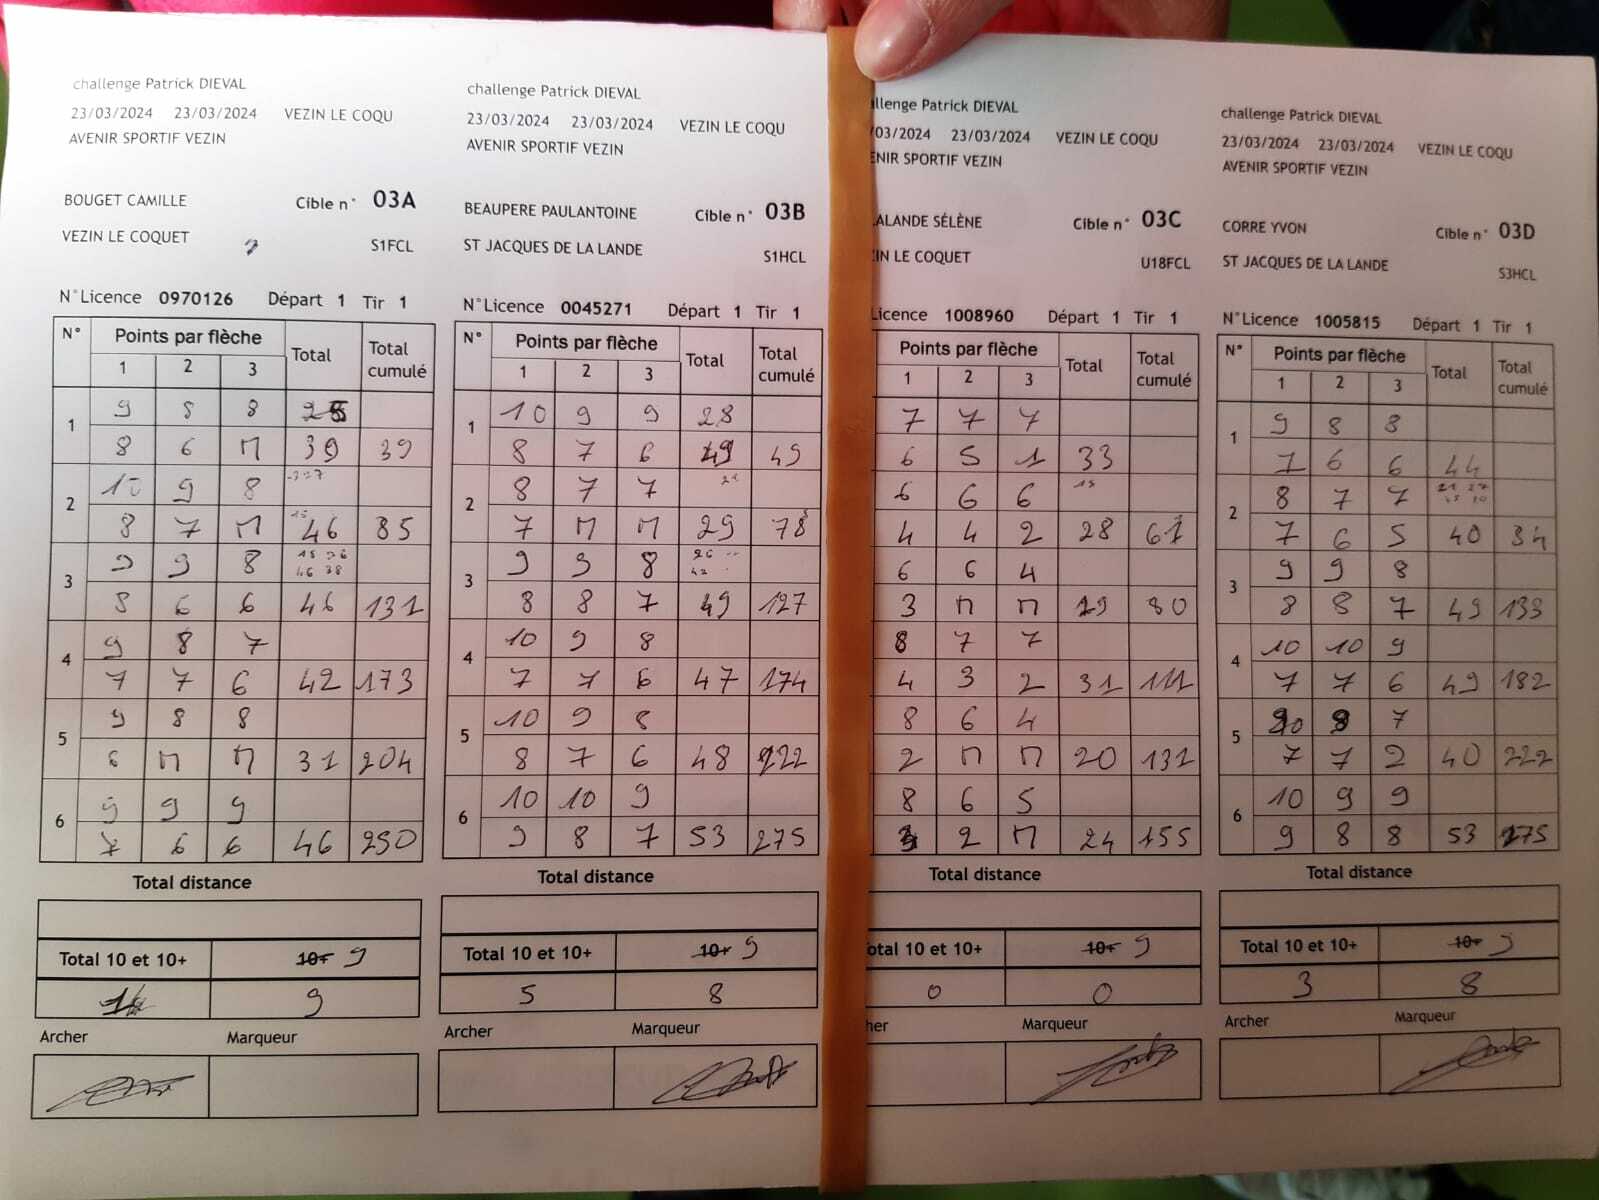 challenge Patrick DIEVAL
23/03/2024 23/03/2024 VEZIN LE COQU
AVENIR SPORTIF VEZIN
BOUGET CAMILLE Cible n° 03A
VEZIN LE COQUET S1FCL
N°Licence 0970126 Départ 1 Tir 1
N° Points par flèche Total Total cumulé
1 2 3
1 9 8 8
8 6 M 39 39
2 10 9 8
8 7 M 46 85
3 9 9 8
8 6 6 46 131
4 9 8 7
7 7 6 42 173
5 9 8 8
6 M M 31 204
6 9 9 9
7 6 6 46 250
Total distance
Total 10 et 10+ 10+ 9
9
Archer Marqueur
challenge Patrick DIEVAL
23/03/2024 23/03/2024 VEZIN LE COQU
AVENIR SPORTIF VEZIN
BEAUPERE PAULANTOINE Cible n° 03B
ST JACQUES DE LA LANDE S1HCL
N°Licence 0045271 Départ 1 Tir 1
N° Points par flèche Total Total cumulé
1 2 3
1 10 9 9 28
8 7 6 49 49
2 8 7 7 21
7 M M 29 78
3 9 9 8
8 8 7 49 127
4 10 9 8
7 7 6 47 174
5 10 9 8
8 7 6 48 222
6 10 10 9
9 8 7 53 275
Total distance
Total 10 et 10+ 10+ 9
5 8
Archer Marqueur
llenge Patrick DIEVAL
/03/2024 23/03/2024 VEZIN LE COQU
ENIR SPORTIF VEZIN
ALANDE SÉLÈNE Cible n° 03C
IN LE COQUET U18FCL
Licence 1008960 Départ 1 Tir 1
Points par flèche Total Total cumulé
1 2 3
7 7 7
6 5 1 33
6 6 6 18
4 4 2 28 61
6 6 4
3 M M 19 80
8 7 7
4 3 2 31 111
8 6 4
2 M M 20 131
8 6 5
3 2 M 24 155
Total distance
otal 10 et 10+ 10+ 9
0 0
her Marqueur
challenge Patrick DIEVAL
23/03/2024 23/03/2024 VEZIN LE COQU
AVENIR SPORTIF VEZIN
CORRE YVON Cible n° 03D
ST JACQUES DE LA LANDE S3HCL
N°Licence 1005815 Départ 1 Tir 1
N° Points par flèche Total Total cumulé
1 2 3
1 9 8 8
7 6 6 44
2 8 7 7
7 6 5 40 84
3 9 9 8
8 8 7 49 133
4 10 10 9
7 7 6 49 182
5 10 7
7 7 2 40 222
6 10 9 9
9 8 8 53 275
Total distance
Total 10 et 10+ 10+ 9
3 8
Archer Marqueur